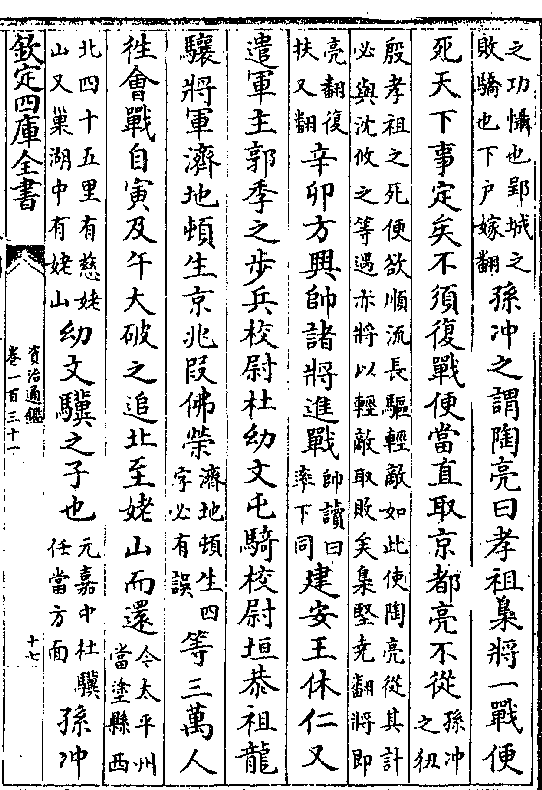 之功懾也郢城之
敗驕也下戶嫁翻
孫冲之謂陶亮曰孝祖梟將一戰便
死天下事定矣不須復戰便當直取京都亮不從
孫冲
之狃
殷孝祖之死便欲順流長驅輕敵如此使陶亮從其計
必與沈攸之等遇亦將以輕敵取敗矣梟堅尭翻將即
亮翻復
扶又翻
辛卯方興帥諸將進戰
帥讀曰
率下同
建安王休仁又
遣軍主郭季之步兵校尉杜幼文屯騎校尉垣恭祖龍
驤將軍濟地頓生京兆叚佛榮
濟地頓生四
字必有誤
等三萬人
徃會戰自寅及午大破之追北至姥山而還
今太平州
當塗縣西
北四十五里有慈姥
山又巢湖中有姥山
幼文驥之子也
元嘉中杜驥
任當方面
孫冲
欽定四庫全書
資治通鑑
卷一百三十一
十七